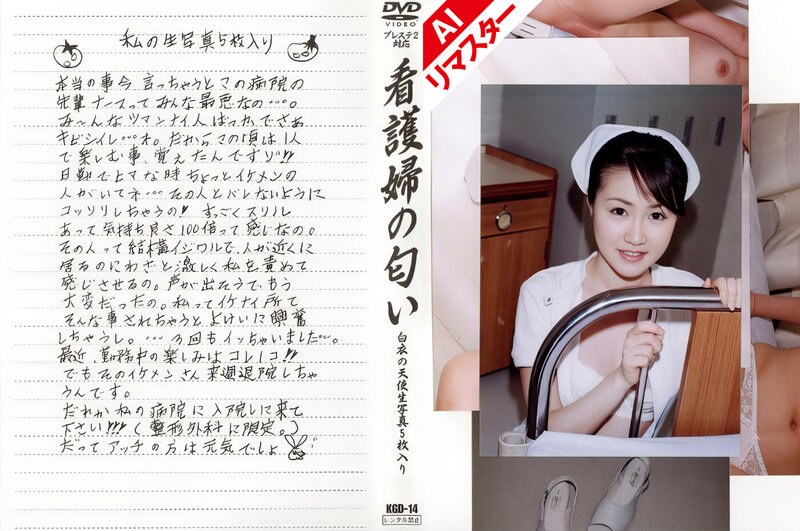 私の生写真5枚入り
本当の事今、言っちゃうとこの病院の
先輩ナースってみんな最悪なの…。
み〜んなツマンナイ人ばっかでさぁ
キビシイし…ネ。だからこの頃は1人
で楽しむ事、覚えたんですヨ!!
日勤でヒマな時ちょっとイケメンの
人がいてネ…その人とバレないように
コッソリしちゃうの!! すっごくスリル
あって気持ち良さ100倍って感じなの。
その人って結構イジワルで、人が近くに
居るのにわざと激しく私を責めて
感じさせるの。声が出そうで、もう
大変だったの。私ってイケナイ所で
そんな事されちゃうとよけいに興奮
しちゃうし。…3回もイッちゃいました…。
最近、勤務中の楽しみはコレ1コ!!
でもそのイケメンさん来週退院しちゃ
うんです。
だれか私の病院に入院しに来て
下さい!!!(整形外科に限定。)
だってアッチの方は元気でしょ
DVD
VIDEO
プレステ2
対応
看護婦の匂い
白衣の天使生写真5枚入り
KGD-14
レンタル禁止
AI
リマスター